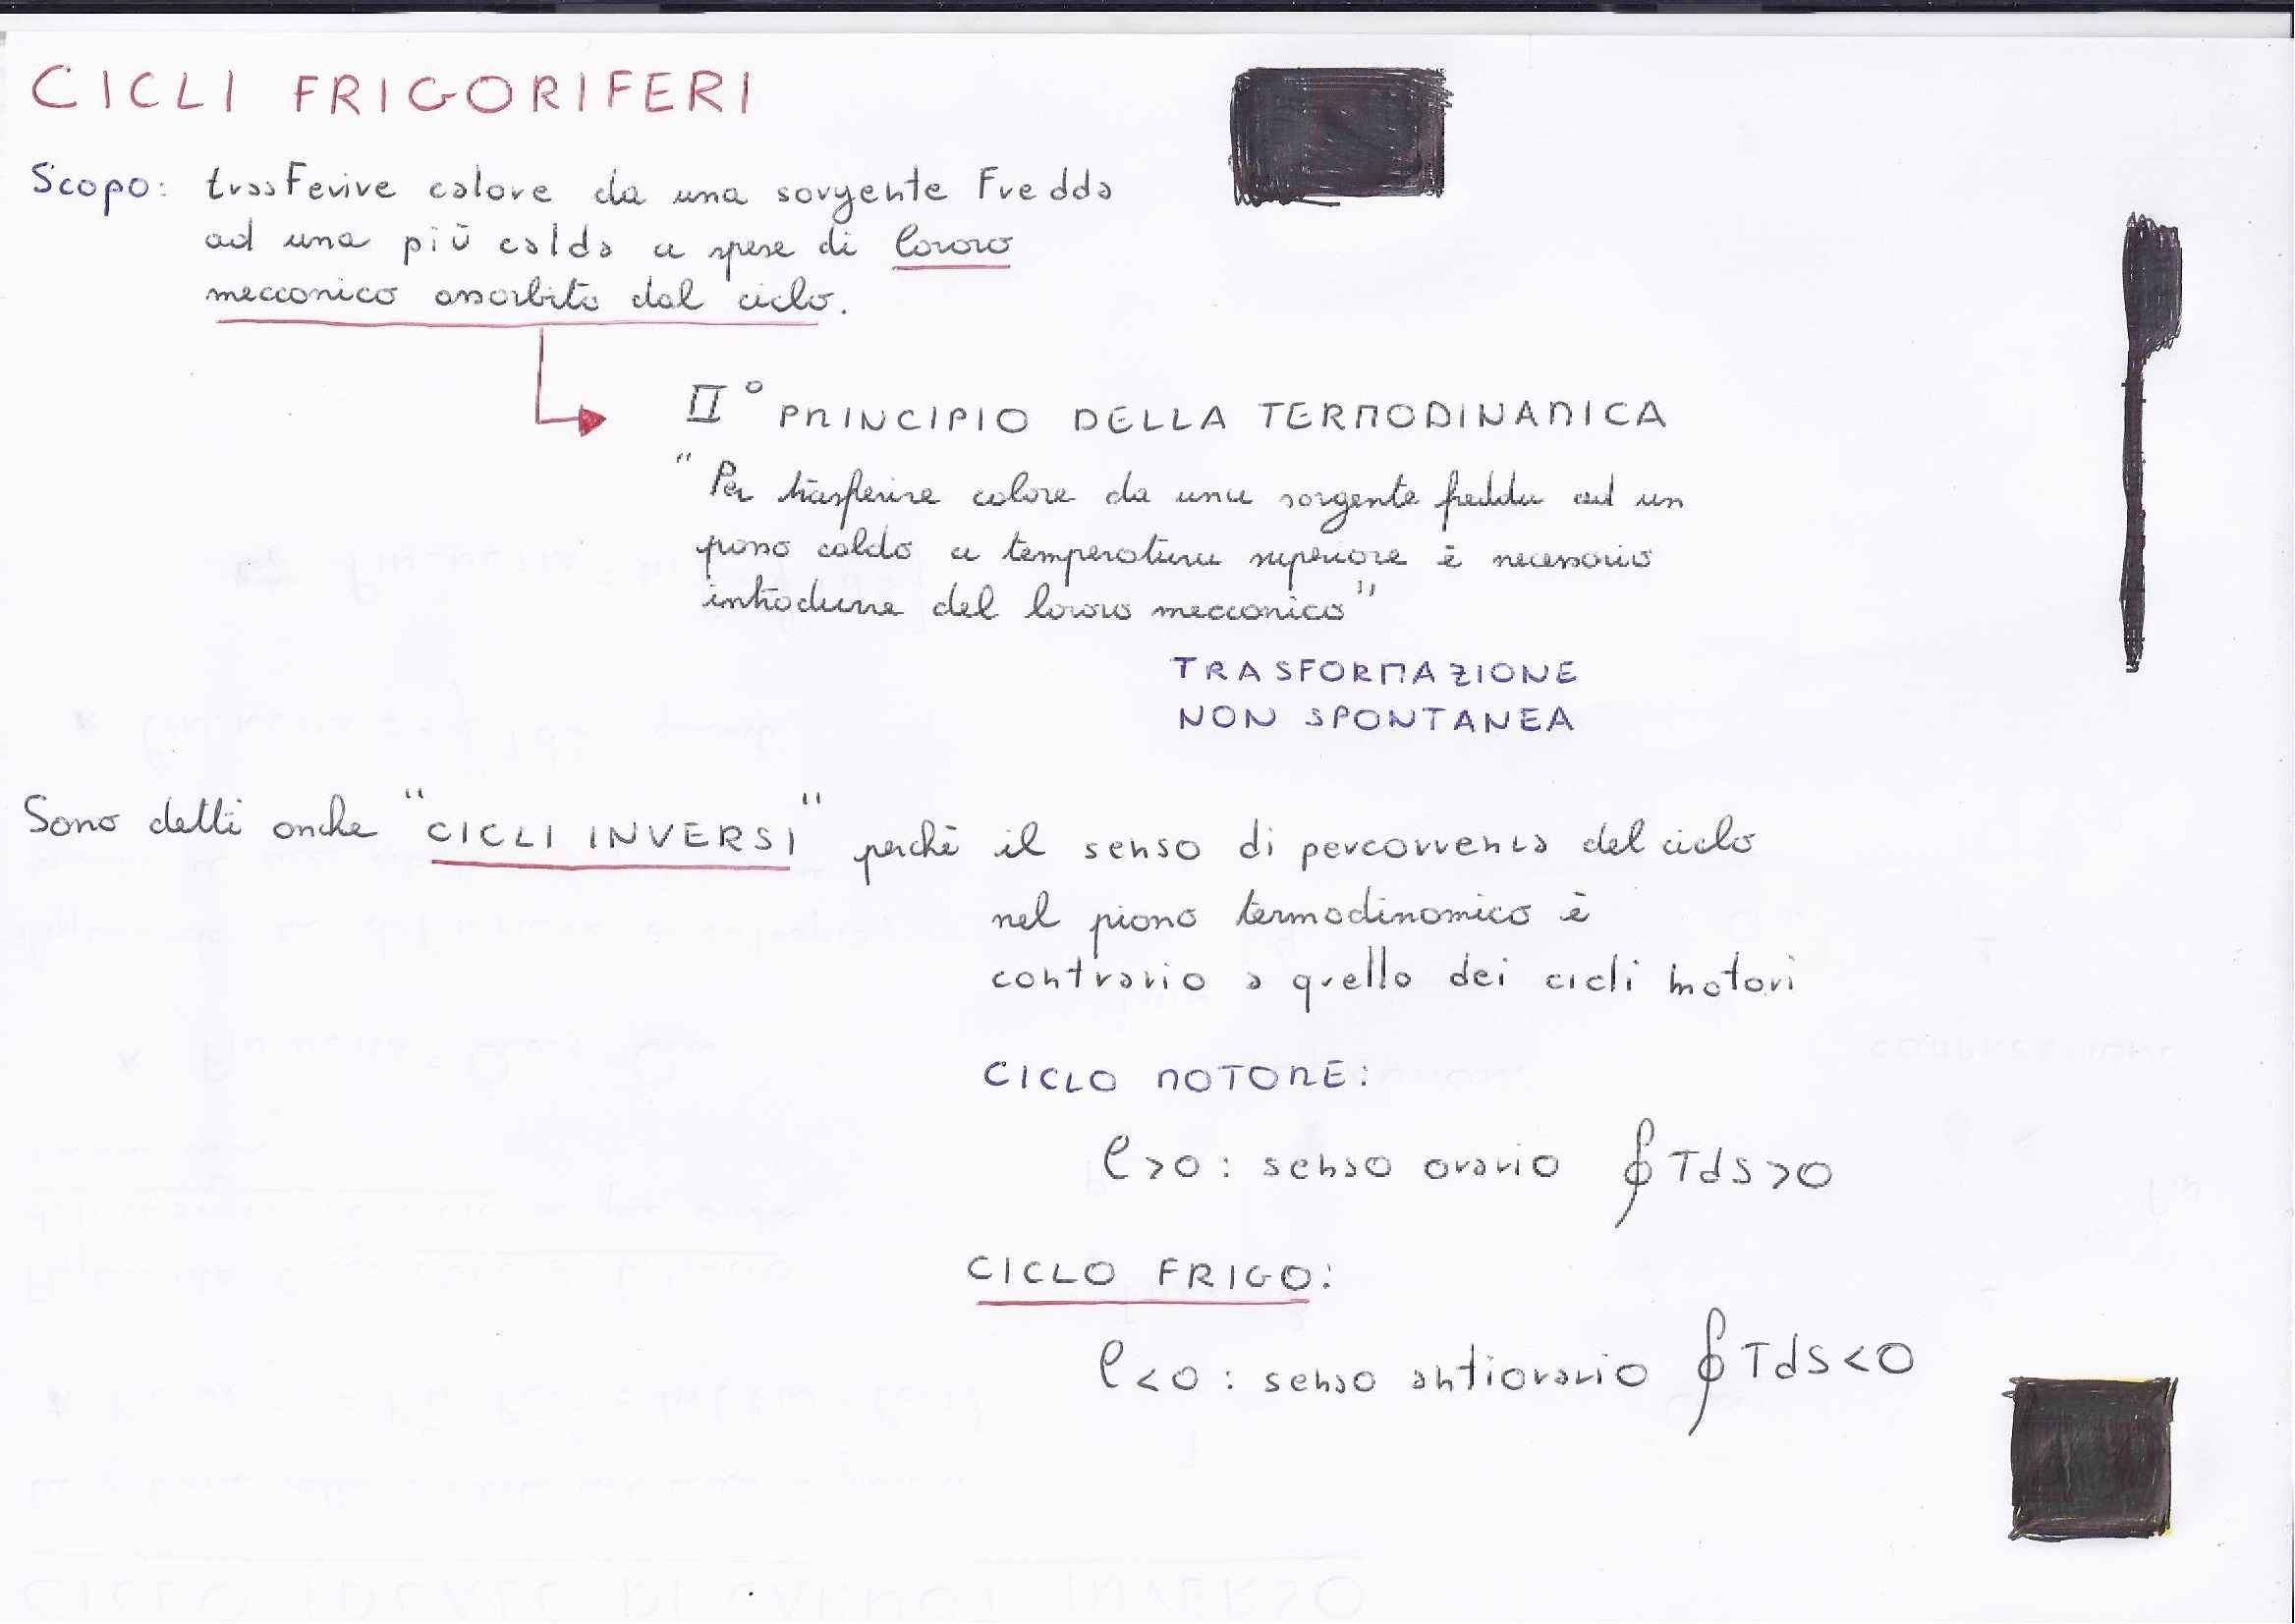 CICLI FRIGORIFERI
Scopo: trasferire calore da una sorgente fredda
ad una più calda a spese di lavoro
meccanico assorbito dal ciclo.
II° PRINCIPIO DELLA TERMODINAMICA
"Per trasferire calore da una sorgente fredda ad un
pozzo caldo a temperatura superiore è necessario
introdurre del lavoro meccanico"
TRASFORMAZIONE
NON SPONTANEA
Sono detti anche "CICLI INVERSI" perchè il senso di percorrenza del ciclo
nel piano termodinamico è
contrario a quello dei cicli motori
CICLO MOTORE:
l>0: senso orario ∮TdS>0
CICLO FRIGO:
l<0: senso antiorario ∮TdS<0